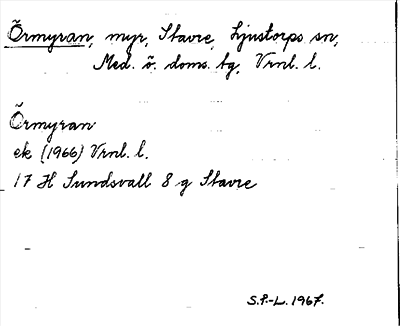 Örmyran, myr, Stavre, Ljustorps sn,
Med. ö. doms. tg, Vrnl. l.
Örmyran
ek (1966) Vrnl. l.
17 H Sundsvall 8 g Stavre
S.P-L. 1967.